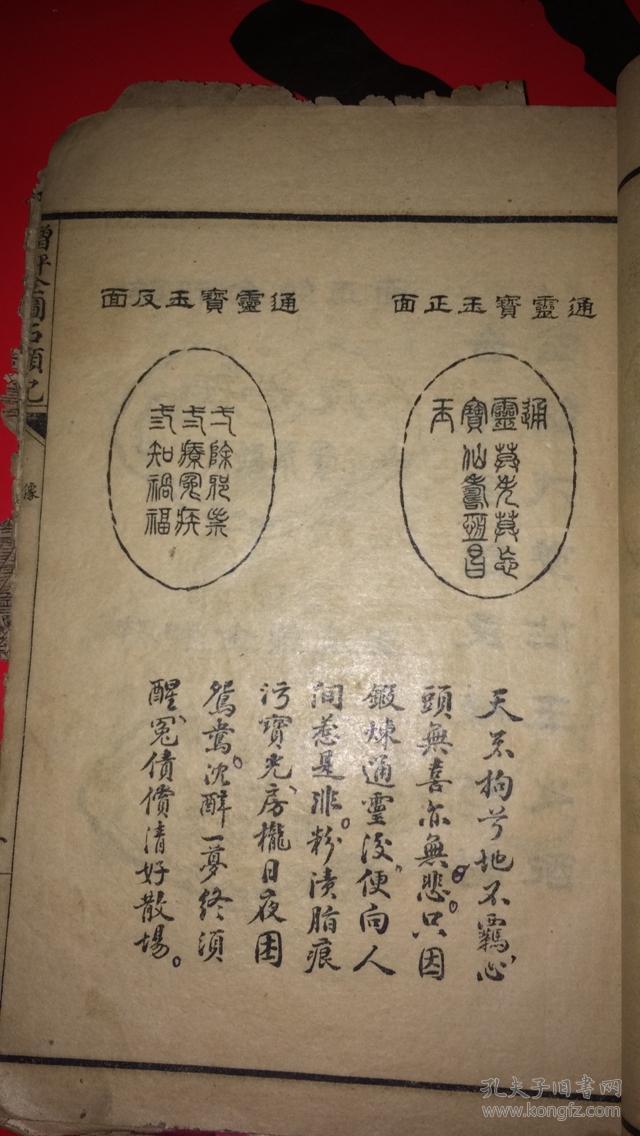 通靈寶玉正面
通
靈莫失莫忘
寶仙壽恆昌
玉
通靈寶玉反面
弌除邪祟
弍療冤疾
弎知禍福
天不拘兮地不羈、心
頭無喜亦無悲。只因
鍛煉通靈後、便向人
間惹是非。粉漬脂痕
污寶光、房櫳日夜困
鴛鴦。沈酣一夢終須
醒、冤債償清好散場。
增評全圖石頭記
像
孔夫子旧书网
www.kongfz.com